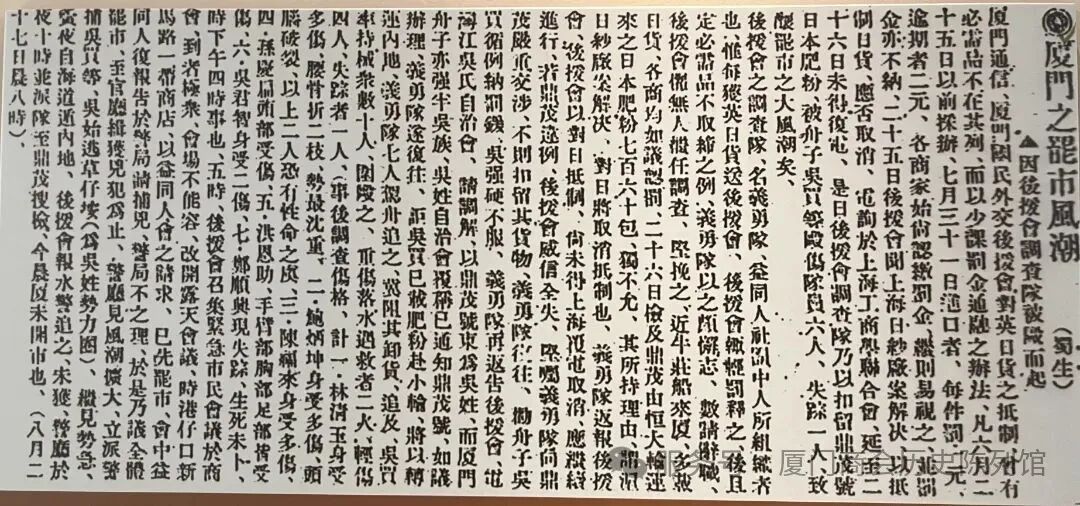 厦門之罷市風潮
(蜀生)
▲因後援會調査隊被毆而起
厦門通信、厦門國民外交後援會對英日貨之抵制、曾有
必需品不在其列、而以少課罰金通融之辦法、凡六月二
十五日以前採辦、七月三十一日進口者、每件罰一元、
逾期者二元、各商家始尚認繳罰金、繼則易視之、並罰
金亦不納、二十五日後援會聞上海日紗廠案解决、以抵
制日貨、應否取消、電詢於上海工商學聯合會、延至二
十六日未得復電、是日後援會調査隊乃以扣留鼎茂號
日本肥粉、被舟子吳買等毆傷隊員六人、失踪一人、致
釀罷市之大風潮矣、
後援會之調査隊、名義勇隊、益同人社團中人所組織者
也、惟每獲英日貨送後援會、後援會輒輕罰釋之、後且
定必需品不取締之例、義勇隊以之頗懈志、數請辭職、
後援會慌無人負責調査、堅挽之、近牛莊船來厦、多載
日貨、各商均如議認罰、二十六日檢及鼎茂由恒大輪運
來之日本肥粉七百六十包、獨不允、其所持理由、謂滬
日紗廠案解决、對日將取消抵制也、義勇隊返報後援
會、後援會以對日抵制、尚未得上海復電取消、應繼續
進行、若鼎茂違例、後援會威信全失、堅囑義勇隊向鼎
茂嚴重交涉、不則扣留其貨物、義勇隊
買循例納罰錢、吳强硬不服、義勇隊再返告後援會、電
海江吳氏自治會、請調解、以鼎茂號東為吳姓、而厦門
舟子强半吳族、吳姓自治會覆稱已通知鼎茂號、如議
辦理、義勇隊遂復往、詎吳買已載肥粉赴小輪、將以轉
運內地、義勇隊七人駕舟追之、冀阻其卸貨、追及、吳買
率持械衆數十人、圍毆之、重傷落水遇救者二人、輕傷
四人、失踪者一人、(事後調査傷格、計一·林清玉身受
多傷、腰骨折二枝、勢最沈重、二·鮑炳坤身受多傷、頭
腦破裂、以上二人恐有性命之虞、三·陳福來身受多傷、
四·孫慶扁頭部受傷、五·洪恩助、手臂部胸部足部皆受
傷、六·吳君智身受二傷、七·鄭順興現失踪、生死未卜、
時下午四時事也、五時、後援會召集緊急市民會議於商
會、到者極衆、會場不能容、改開露天會議、時港仔口新
馬路一帶商店、以益同人會之請求、已先罷市、會中益
同人復報告於警局請捕兇、警局不之理、於是乃議全體
罷市、至官廳緝獲兇犯為止、警廳見風潮擴大、立派警
捕吳買等、吳始逃草仔垵(為吳姓勢力圈)、繼見勢急、
寅夜自海道遁內地、後援會報水警追之、未獲、警廳於
夜十時並派隊至鼎茂搜檢、今晨厦未開市也、(八月二
十七日晨八時)、
厦门商会历史陈列馆